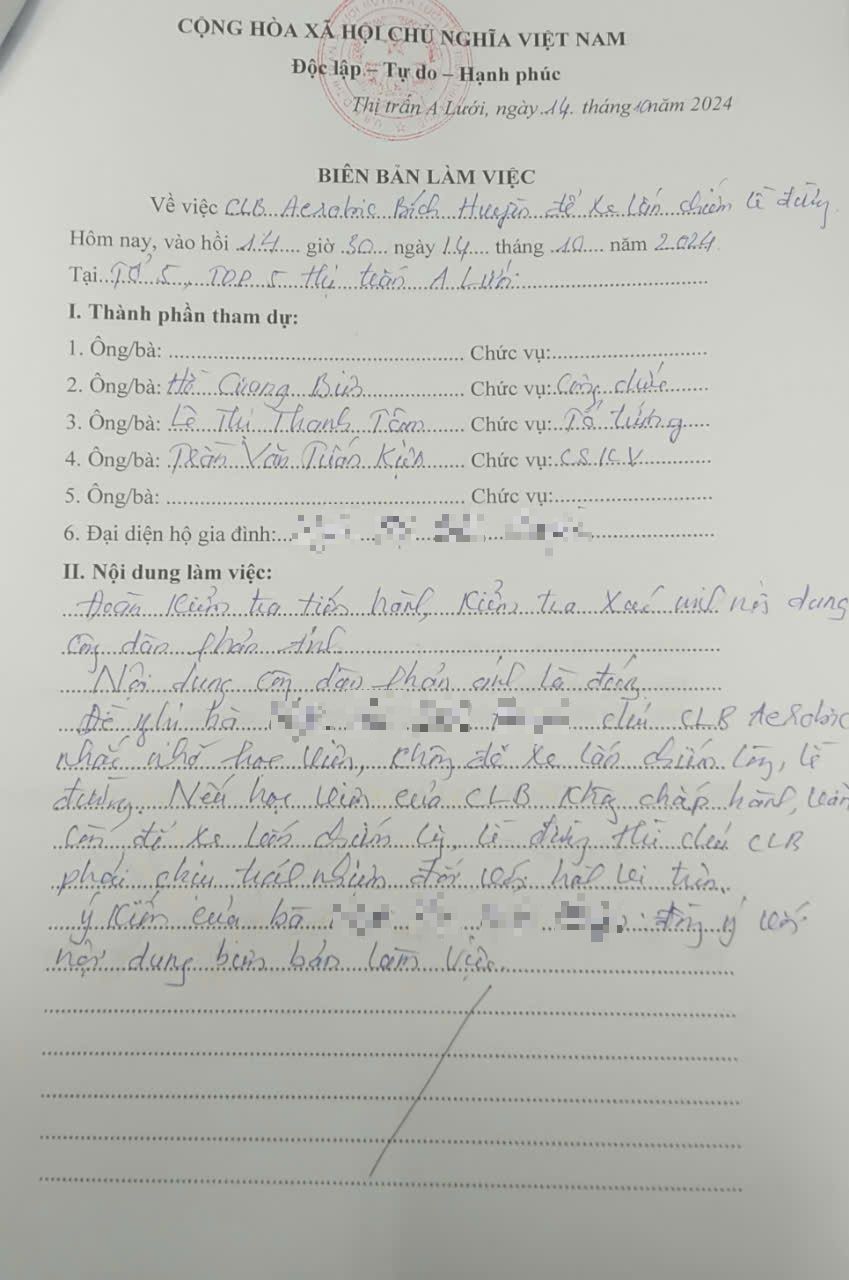 CỘNG HÒA XÃ HỘI CHỦ NGHĨA VIỆT NAM
Độc lập – Tự do – Hạnh phúc
Thị trấn A Lưới, ngày 14 tháng 10 năm 2024
BIÊN BẢN LÀM VIỆC
Về việc CLB Aerobic Bích Huyền để xe lấn chiếm lề đường
Hôm nay, vào hồi 14 giờ 30 ngày 14 tháng 10 năm 2024
Tại Tổ 5, TDP 5 thị trấn A Lưới
I. Thành phần tham dự:
1. Ông/bà: Chức vụ:
2. Ông/bà: Hồ Cương Chức vụ: Công chức
3. Ông/bà: Lê Thị Thanh Tâm Chức vụ: Tổ trưởng
4. Ông/bà: Trần Văn Tuấn Kiện Chức vụ: CSKV
5. Ông/bà: Chức vụ:
6. Đại diện hộ gia đình:
II. Nội dung làm việc:
Đoàn kiểm tra tiến hành kiểm tra xác minh nội dung
công dân phản ánh
Nội dung công dân phản ánh là đúng
Đề nghị bà chủ CLB Aerobic
nhắc nhở học viên, không để xe lấn chiếm lòng, lề
đường. Nếu học viên của CLB không chấp hành, vẫn
còn để xe lấn chiếm lòng, lề đường thì chủ CLB
phải chịu trách nhiệm đối với hành vi trên.
Ý kiến của bà đồng ý với
nội dung biên bản làm việc.